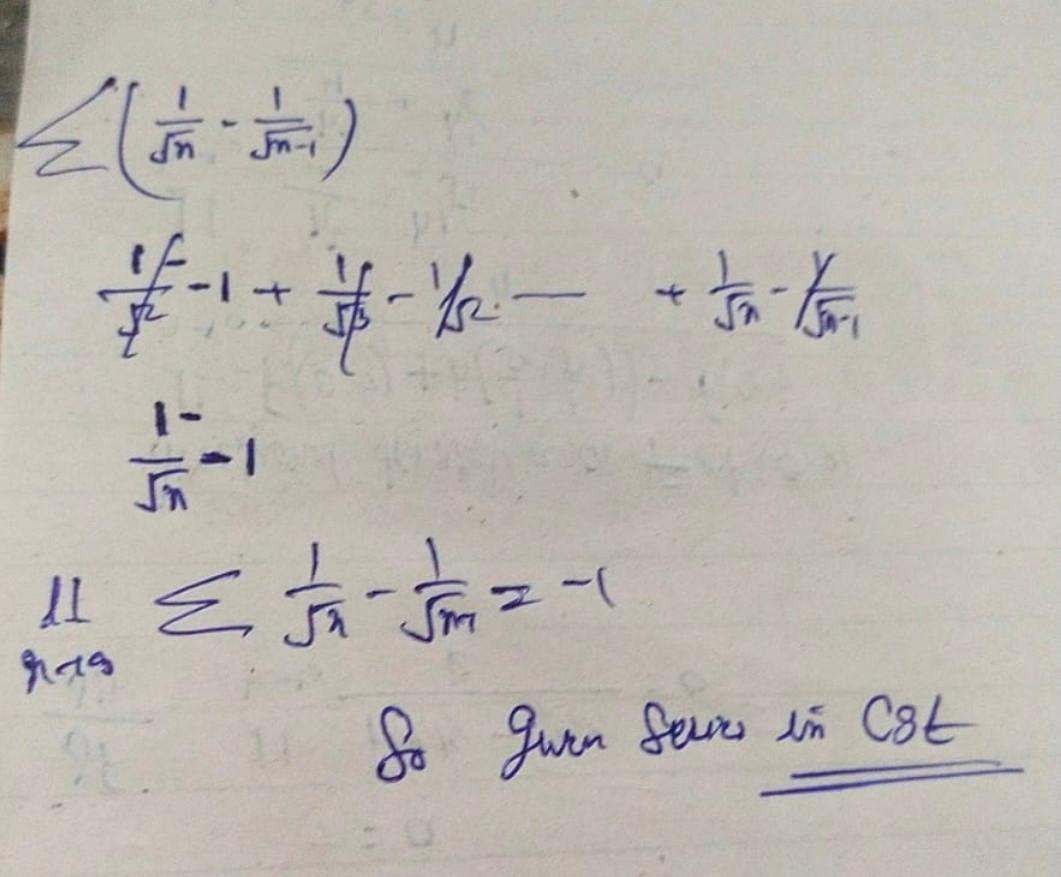 ∑(1/√n - 1/√n-1)
1/√2 - 1 + 1/√3 - 1/√2 — + 1/√n - 1/√n-1
1/√n - 1
∑ 1/√n - 1/√n-1 = -1
n→∞
So given Series is Cgt